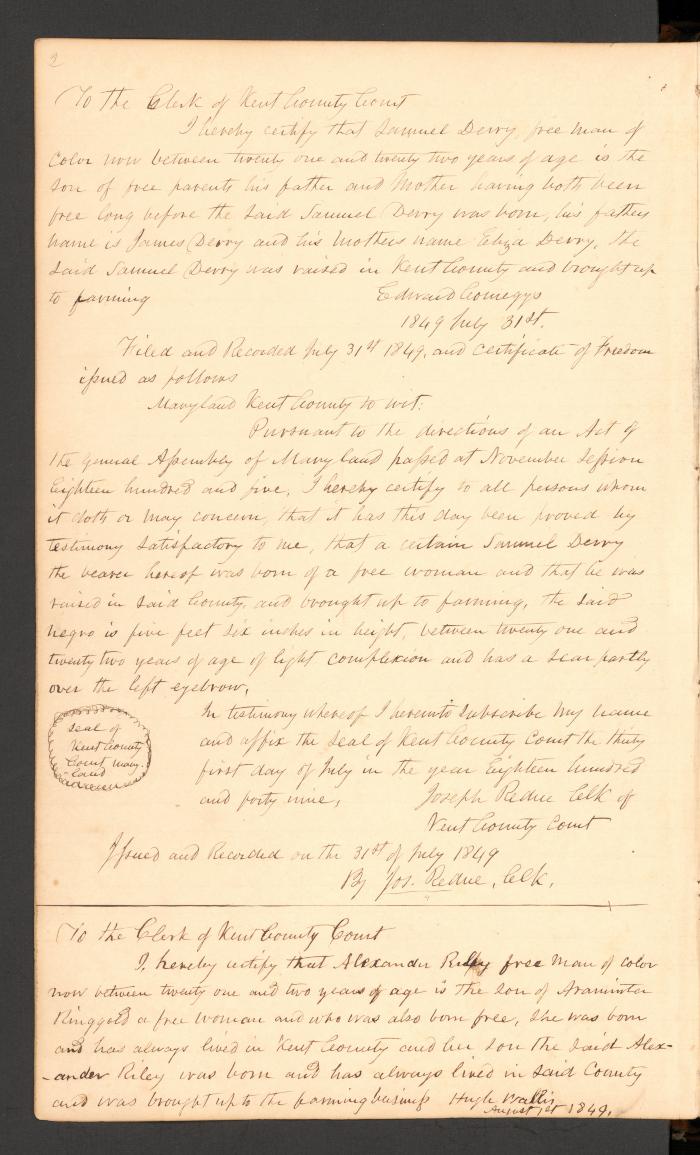 2
To the Clerk of Kent County Court
I hereby certify that Samuel Derry free man of
color now between twenty one and twenty two years of age is the
son of free parents his father and Mother having both been
free long before the said Samuel Derry was born, his fathers
name is James Derry and his Mothers name Eliza Derry. the
said Samuel Derry was raised in Kent County and brought up
to farming
Edward Comegys
1849 July 31st.
Filed and Recorded July 31st 1849, and certificate of Freedom
issued as follows
Maryland Kent County to wit:
Pursuant to the directions of an Act of
the general Assembly of Maryland passed at November Session
Eighteen hundred and five, I hereby certify to all persons whom
it doth or may concern, that it has this day been proved by
testimony satisfactory to me, that a certain Samuel Derry
the bearer hereof was born of a free woman and that he was
raised in said County, and brought up to farming, the said
negro is five feet six inches in height, between twenty one and
twenty two years of age of light complexion and has a scar partly
over the left eyebrow.
Seal of
Kent County
Court Mary-
land
In testimony whereof I hereunto subscribe my name
and affix the seal of Kent County Court the thirty
first day of July in the year Eighteen hundred
and forty nine,
Joseph Redue Clk of
Kent County Court
Issued and Recorded on the 31st of July 1849
By Jos. Redue, Clk.
To the Clerk of Kent County Court
I, hereby certify that Alexander Riley free man of color
now between twenty one and two years of age is the son of Araminta
Ringgold a free woman and who was also born free, she was born
and has always lived in Kent County and her son the said Alex-
-ander Riley was born and has always lived in said County
and was brought up to the farming business Hugh Wallis
August 1st 1849.